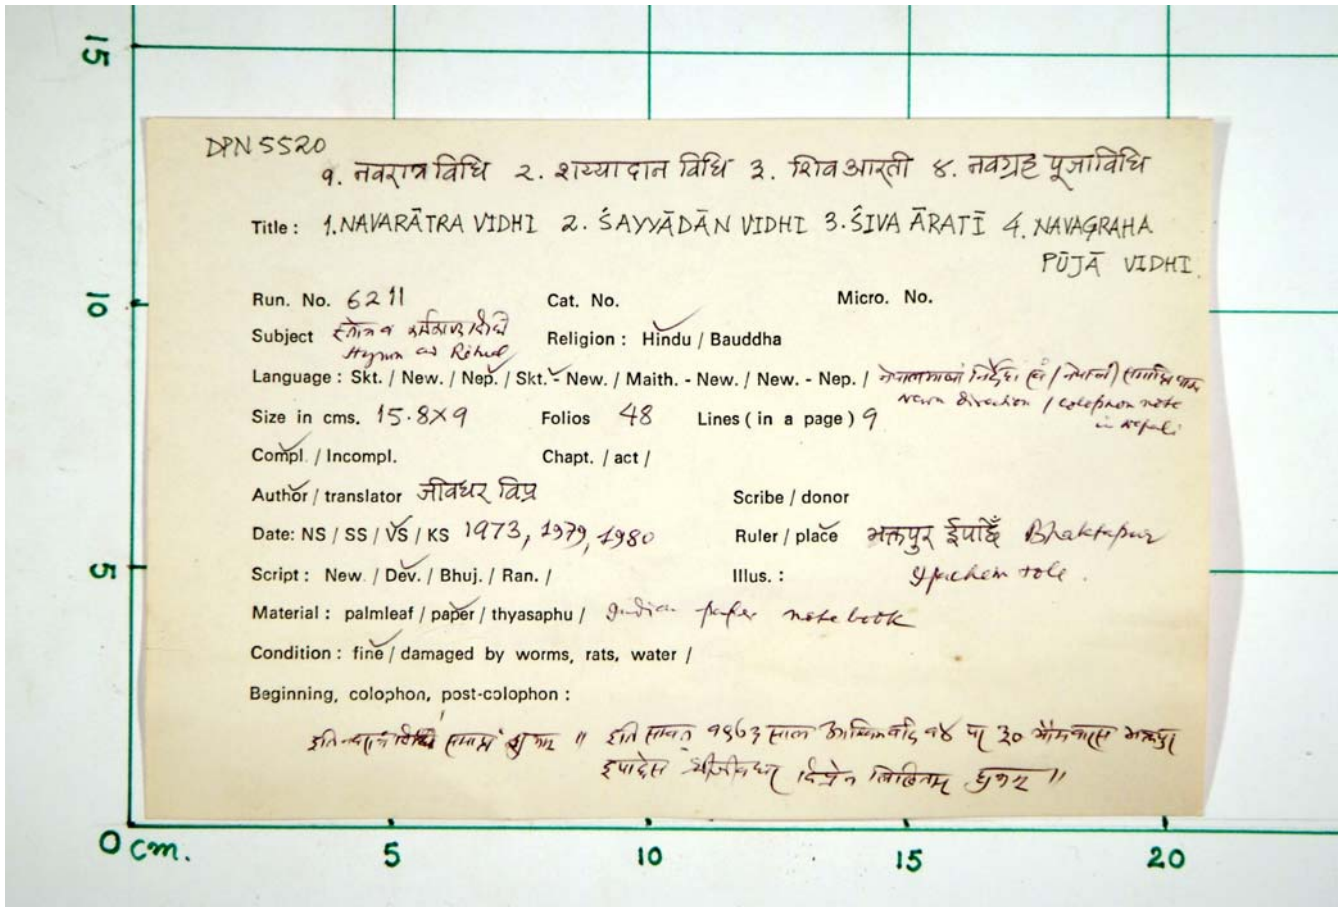 15
DPN 5520
१. नवरात्र विधि २. शय्यादान विधि ३. शिव आरती ४. नवग्रह पूजाविधि
Title : 1. NAVARĀTRA VIDHI 2. ŚAYYĀDĀN VIDHI 3. ŚIVA ĀRATĪ 4. NAVAGRAHA
PŪJĀ VIDHI
10
Run. No. 6211 Cat. No. Micro. No.
Subject स्तोत्र व कर्मकाण्ड विधि Religion : Hindu / Bauddha
Hymn and Ritual
Language : Skt. / New. / Nep. / Skt. - New. / Maith. - New. / New. - Nep. / नेपालभाषां निर्देशन
Newn direction / colophon note
in Nepali
Size in cms. 15.8x9 Folios 48 Lines ( in a page ) 9
Compl. / Incompl. Chapt. / act /
Author / translator जीवधर विप्र Scribe / donor
Date: NS / SS / VS / KS 1973, 1979, 1980 Ruler / place भक्तपुर ईपाछेँ Bhaktapur
5
Script : New. / Dev. / Bhuj. / Ran. / Illus. : Ipachem tole.
Material : palmleaf / paper / thyasaphu / Indian paper note book
Condition : fine / damaged by worms, rats, water /
Beginning, colophon, post-colophon :
इति नवरात्र विधि समाप्तं शुभम् ॥ इति सम्वत् १९७३ साल आश्विन वदि १४ पर ३० भौमवासर भक्तपुर
इपाछेस श्रीजीवधर विप्रेन लिखितम् शुभम् ॥
0 cm. 5 10 15 20